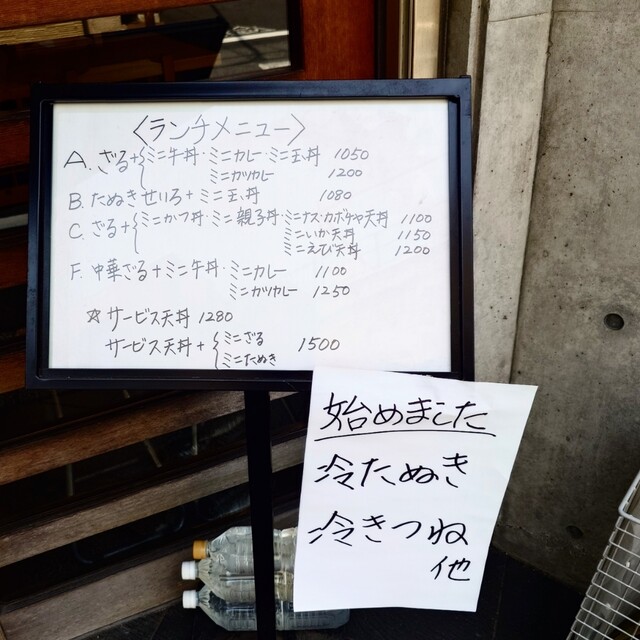 〈ランチメニュー〉
A. ざる+{ミニ牛丼・ミニカレー・ミニ玉丼 1050
ミニカツカレー 1200
B. たぬきせいろ+ミニ玉丼 1080
C. ざる+{ミニかつ丼・ミニ親子丼・ミニナス・カボチャ天丼 1100
ミニいか天丼 1150
ミニえび天丼 1200
F. 中華ざる+ミニ牛丼・ミニカレー 1100
ミニカツカレー 1250
☆サービス天丼 1280
サービス天丼+{ミニざる 1500
ミニたぬき
始めました
冷たぬき
冷きつね
他